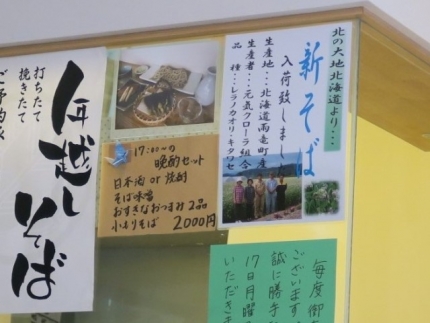 北の大地北海道より・・・
新そば
入荷致しました
生産地・・・北海道雨竜町産
生産者・・・元気クローラ組合
品種・・・レラノカオリ・キタワセ
17:00〜の
晩酌セット
日本酒 or 焼酎
そば味噌
お好きなおつまみ2品
小もりそば 2000円
打ちたて
挽きたて
年越しそば
ご予約承
毎度御
ございます
誠に勝手
17日月曜
いただきま